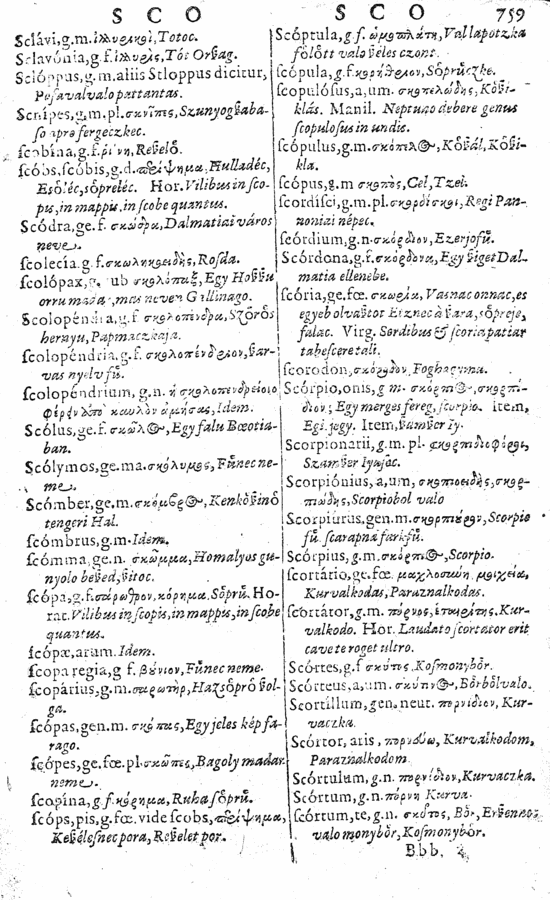 S C O
S C O
759
Sclávi,g.m. Totoc.
Sclavónia,g.f. Tót Orßag.
Sclóppus,g.m.aliis Stloppus dicitur,
Pofa valvalo pattantas.
Scnipes,g.m.pl.σκνῖπες, Szunyogßaba-
so apro fergeczkec.
scobina,g.f.ῥίνη, Reßelő.
scóbs,scóbis,g.d. Hulladéc,
Esőléc,sőpreléc. Hor. Vilibus in sco-
pis,in mappis,in scobe quantus.
Scódra,ge.f. σκώδρα, Dalmatiai város
neve.
scolecía.g.f.σκωληκοειδὴς, Rosda.
scolópax,g. Egy Hoßßu
orru mada neven Gallinago.
Scolopéndra,g.f σκολοπένδρα, Szőrős
hernyu, Papmaczkaja.
scolopéndria,g.f. σκολοπένδριον, ßar-
vas nyelv fű.
scolopéndrium, g.n. ἡ
Idem.
Scólus,ge.f. σκῶλος, Egy falu Bœotia-
ban.
Scólymos,ge.ma.σκόλυμος, Fűnec ne-
me.
Scómber,ge.m.σκόμβρος, Kenkőßinő
tengeri Hal.
scómbrus,g.m.Idem.
scómma,ge.n. σκῶμμα, Homalyos gu-
nyolo beßed, ßitoc.
scópa,g.f.σάρωθρον,κόρημα, Sőprű. Ho-
rat. Vilibus in scopis,in mappis,in scobe
quantus.
scópæ,arum. Idem.
scopa regia,g f. βύνιον, Fűnec neme.
scopárius,g.m.σαρωτὴρ, Hazsőprő ßol-
ga.
scópas,gen.m. σκόπας, Egy jeles kép fa-
rago.
scópes,ge.fœ.pl.σκῶπες, Bagoly madar
neme.
scopína,g.f.κόρημα, Ruha sőprű.
scóps,pis,g.fœ, vide scobs,
Keßélesnec pora, Reßelet por.
Scóptula,g.f. ὠμοπλάτη, Vallapotzka
főlőtt valo ßéles czont.
scópula,g.f.κορήθελον, Sőprűczke.
scopulósus,a,um. σκοπελώδης, Kőßi-
klás. Manil. Neptuno debere genus
scopulosus in undis.
scópulus,g.m.σκόπελος, Kőßál, Kőßi-
kla.
scópus,g.m σκοπὸς, Cél, Tzel.
scordísci,g.m.pl.σκορδίσκοι, Regi Pan-
noniai népec.
scórdium,g.n.σκόρδιον, Ezerjofű.
Scórdona,g.f.σκόρδονα, Egy ßiget Dal-
matia ellenebe.
scória,ge.fœ. σκωρία, Vasnac onnac, es
egyeb olvaßtot Ertznec a ßara, sőpreje,
salac. Virg. Sordibus & scoria patiar
tabescere tali.
scorodon,σκόροδον, Foghagyma.
Scórpio,onis,g m. σκόρπιος,σκορπί-
διον; Egy merges fereg, scorpio. Item,
Egi jegy. Item,
Scorpionarii,g.m. pl.
Szamßer Iyasoc.
Scorpiónius,a,um,
Scorpiobol valo
Scorpiúrus,gen.m.σκορπίουρον, Scorpio
fű. scarapna farkfű.
Scórpius,g.m.σκόρπιος, Scorpio.
scortátio,ge.fœ. μαχλοσύνη, μοιχεία,
Kurvalkodas, Paraznalkodas.
scortátor,g.m. πόρνος, Kur-
valkodo. Hor. Laudato scortator erit
cave te roget ultro.
Scórtes,g.f σκύτις, Kosmonybőr.
Scórteus,a,um. Bőrből valo.
Scortillum,gen. neut. πορνίδιον, Kur-
vaczka.
Scórtor, aris, πορνεύω, Kurvalkodom,
Paraznalkodom.
Scórtulum,g.n. πορνίδιον, Kurvaczka.
Scórtum,g.n. πόρνη Kurva.
scórtum,te,g.n. σκύτος, Bőr,
valo monybőr, Kosmonybőr.
Bbb. 4